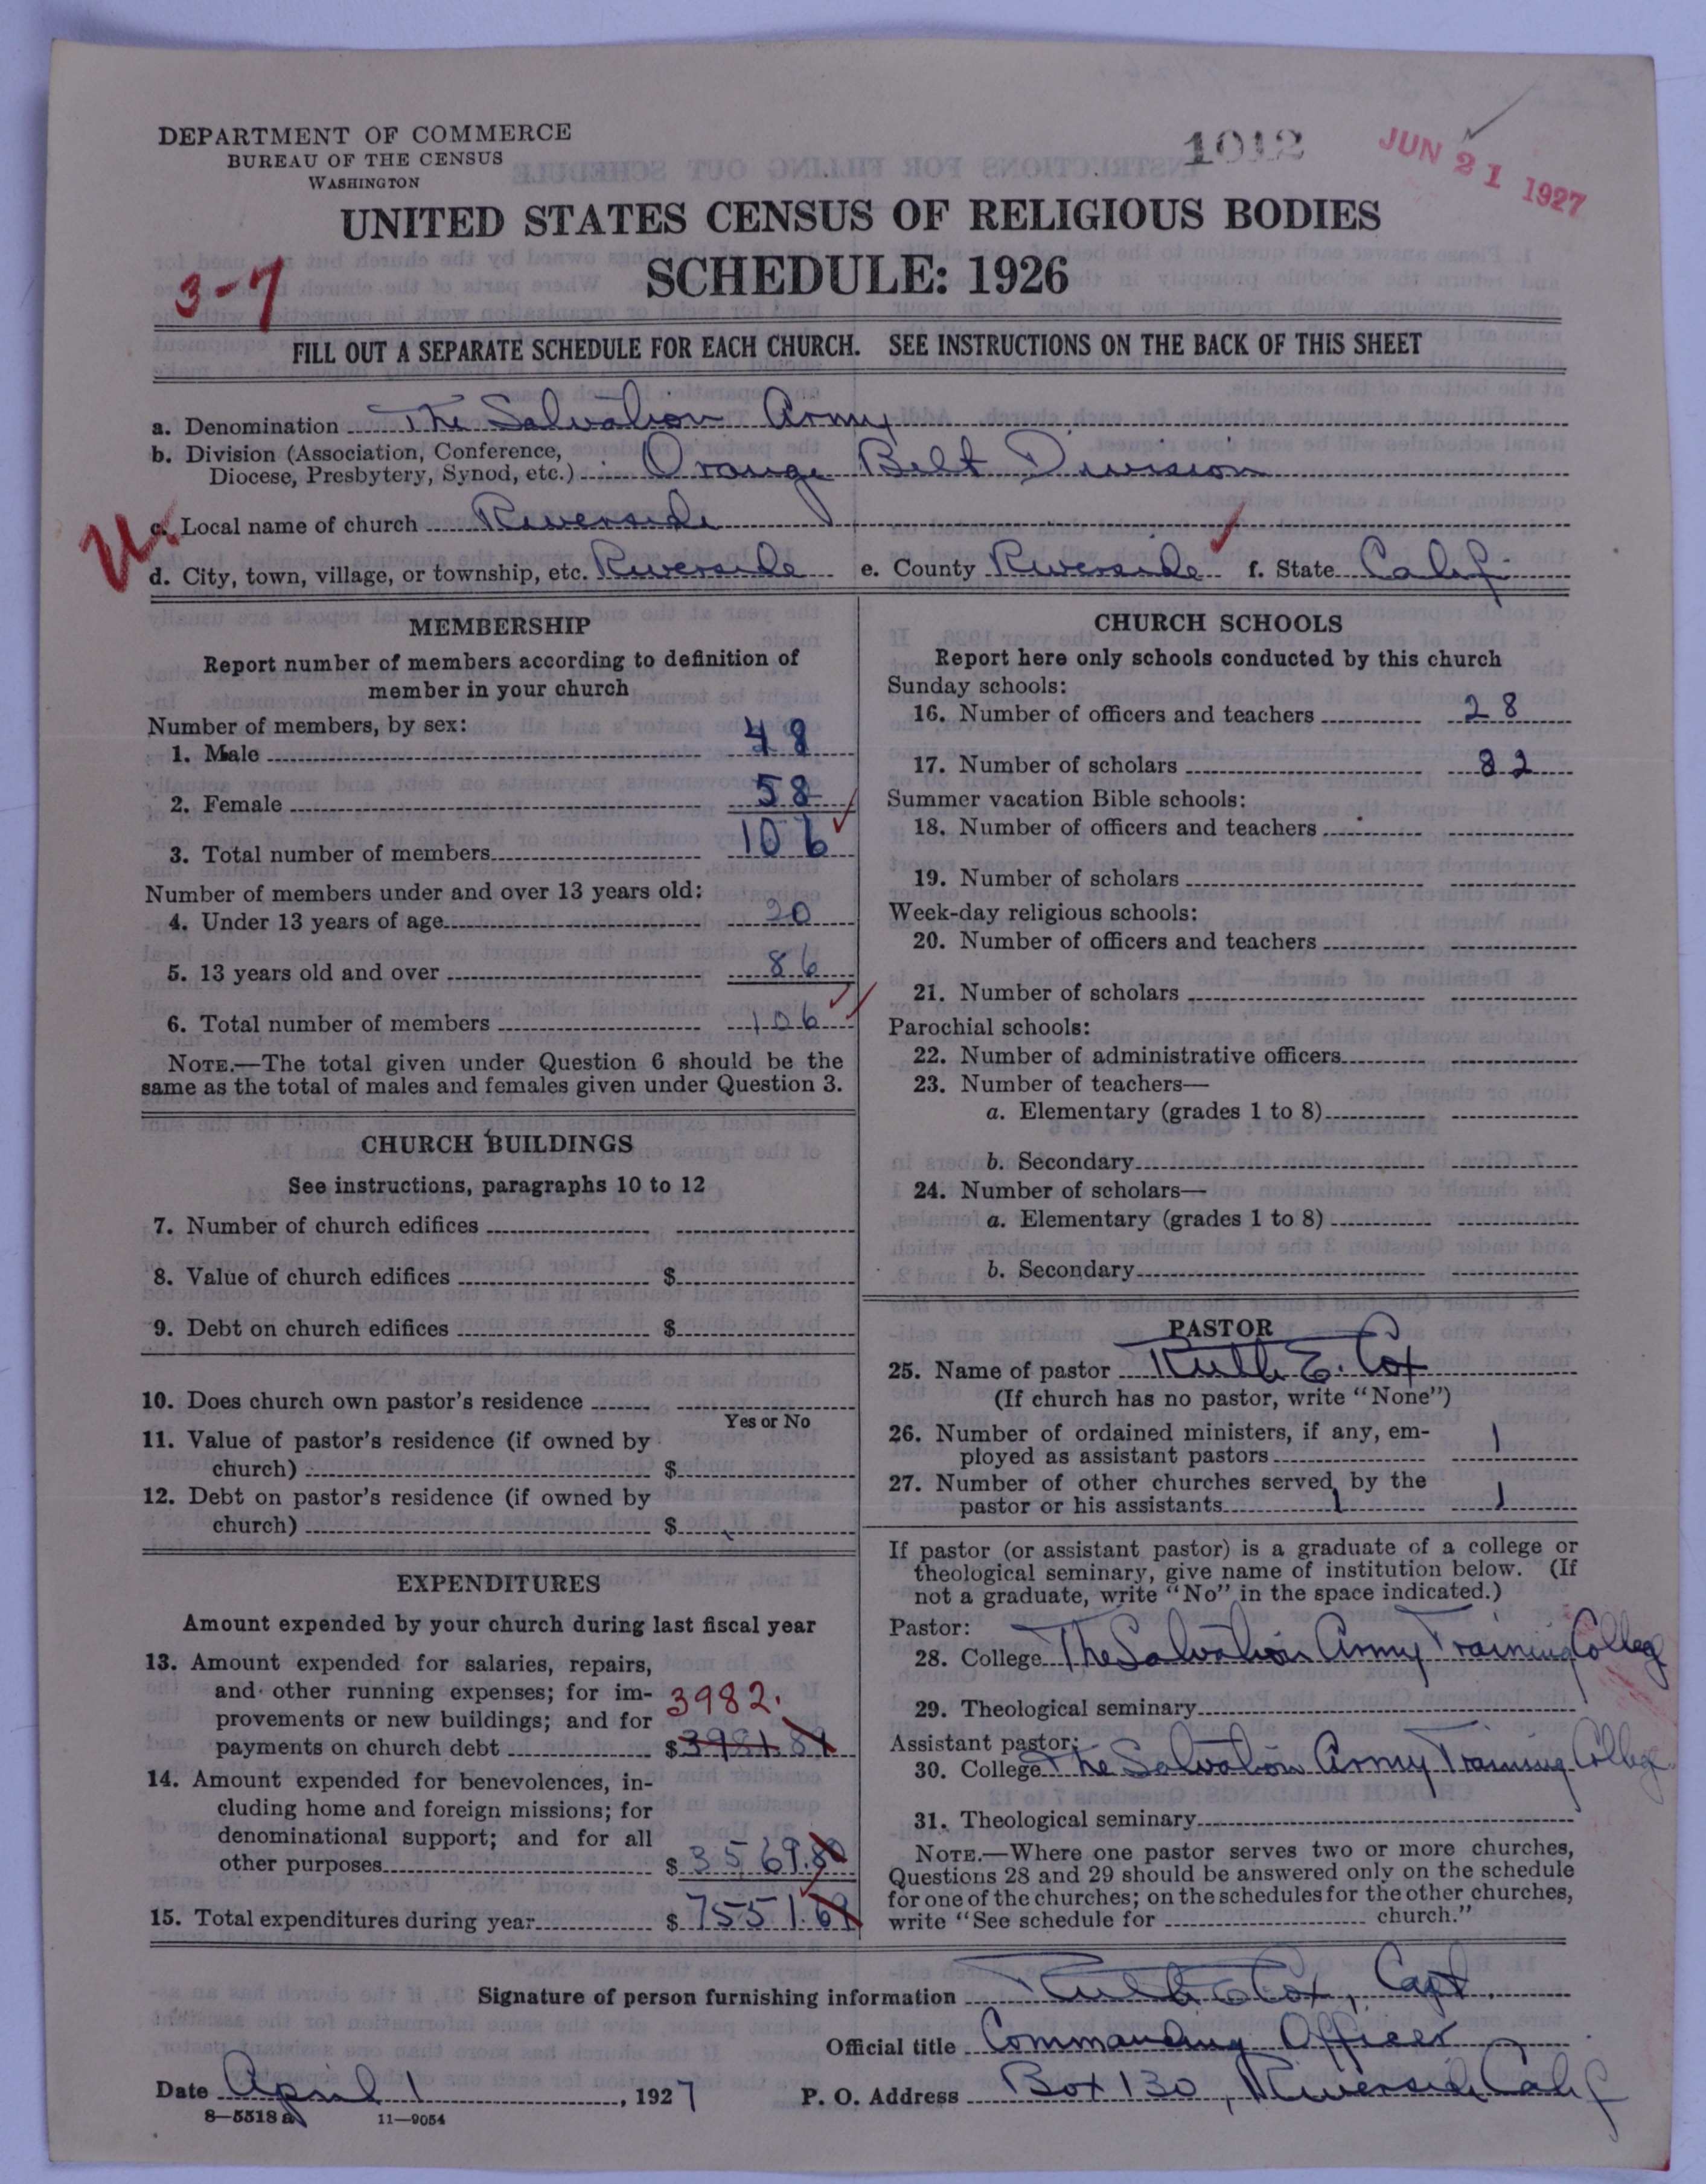 DEPARTMENT OF COMMERCE
BUREAU OF THE CENSUS
WASHINGTON
1012
JUN 21 1927
UNITED STATES CENSUS OF RELIGIOUS BODIES
SCHEDULE: 1926
3-7
FILL OUT A SEPARATE SCHEDULE FOR EACH CHURCH. SEE INSTRUCTIONS ON THE BACK OF THIS SHEET
a. Denomination The Salvation Army
b. Division (Association, Conference,
Diocese, Presbytery, Synod, etc.) Orange Belt Division
c. Local name of church Riverside
d. City, town, village, or township, etc. Riverside e. County Riverside f. State Calif.
MEMBERSHIP
Report number of members according to definition of
member in your church
Number of members, by sex:
1. Male 48
2. Female 58
3. Total number of members 106
Number of members under and over 13 years old:
4. Under 13 years of age 20
5. 13 years old and over 86
6. Total number of members 106
NOTE.—The total given under Question 6 should be the
same as the total of males and females given under Question 3.
CHURCH BUILDINGS
See instructions, paragraphs 10 to 12
7. Number of church edifices
8. Value of church edifices $
9. Debt on church edifices $
10. Does church own pastor's residence
Yes or No
11. Value of pastor's residence (if owned by
church) $
12. Debt on pastor's residence (if owned by
church) $
EXPENDITURES
Amount expended by your church during last fiscal year
13. Amount expended for salaries, repairs,
and other running expenses; for im-
provements or new buildings; and for 3982.
payments on church debt $3981.89
14. Amount expended for benevolences, in-
cluding home and foreign missions; for
denominational support; and for all
other purposes $3569.80
15. Total expenditures during year $7551.69
CHURCH SCHOOLS
Report here only schools conducted by this church
Sunday schools:
16. Number of officers and teachers 28
17. Number of scholars 82
Summer vacation Bible schools:
18. Number of officers and teachers
19. Number of scholars
Week-day religious schools:
20. Number of officers and teachers
21. Number of scholars
Parochial schools:
22. Number of administrative officers
23. Number of teachers—
a. Elementary (grades 1 to 8)
b. Secondary
24. Number of scholars—
a. Elementary (grades 1 to 8)
b. Secondary
PASTOR
25. Name of pastor Ruth E. Cox
(If church has no pastor, write "None")
26. Number of ordained ministers, if any, em-
ployed as assistant pastors 1
27. Number of other churches served by the
pastor or his assistants 1 1
If pastor (or assistant pastor) is a graduate of a college or
theological seminary, give name of institution below. (If
not a graduate, write "No" in the space indicated.)
Pastor:
28. College The Salvation Army Training College
29. Theological seminary
Assistant pastor:
30. College The Salvation Army Training College
31. Theological seminary
NOTE.—Where one pastor serves two or more churches,
Questions 28 and 29 should be answered only on the schedule
for one of the churches; on the schedules for the other churches,
write "See schedule for church."
Signature of person furnishing information Ruth E Cox, Capt.
Official title Commanding Officer
Date April 1, 1927 P. O. Address Box 130, Riverside Calif
8—5518a 11—9054